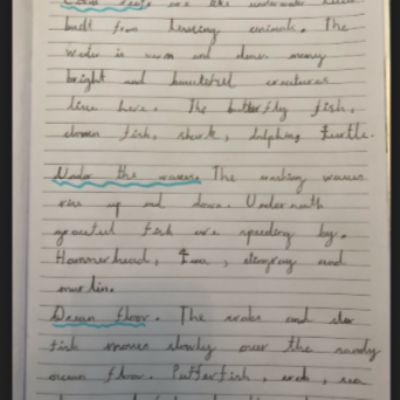 Coral reefs are like underwater
built from housing animals. The
water is warm and down many
bright and beautiful creatures
live here. The butterfly fish,
clown fish, shark, dolphins turtle.
Under the waves. The washing waves
rise up and down. Underneath
graceful fish are speeding by.
Hammerhead, tuna, stingray and
marlin.
Ocean floor. The crabs and star
fish moves slowly over the sandy
ocean floor. Pufferfish, crab, sea